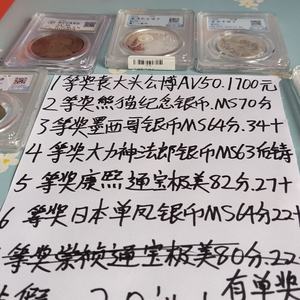 1等奖袁大头公博AV50.1700元
2等奖熊猫纪念银币MS70分
3等奖墨西哥银币MS64分.34+
4等奖大力神法郎银币MS63后铸
5等奖康熙通宝极美82分.27+
6等奖日本单凤银币MS64分22+
等奖崇祯通宝极美80分.22
有单奖